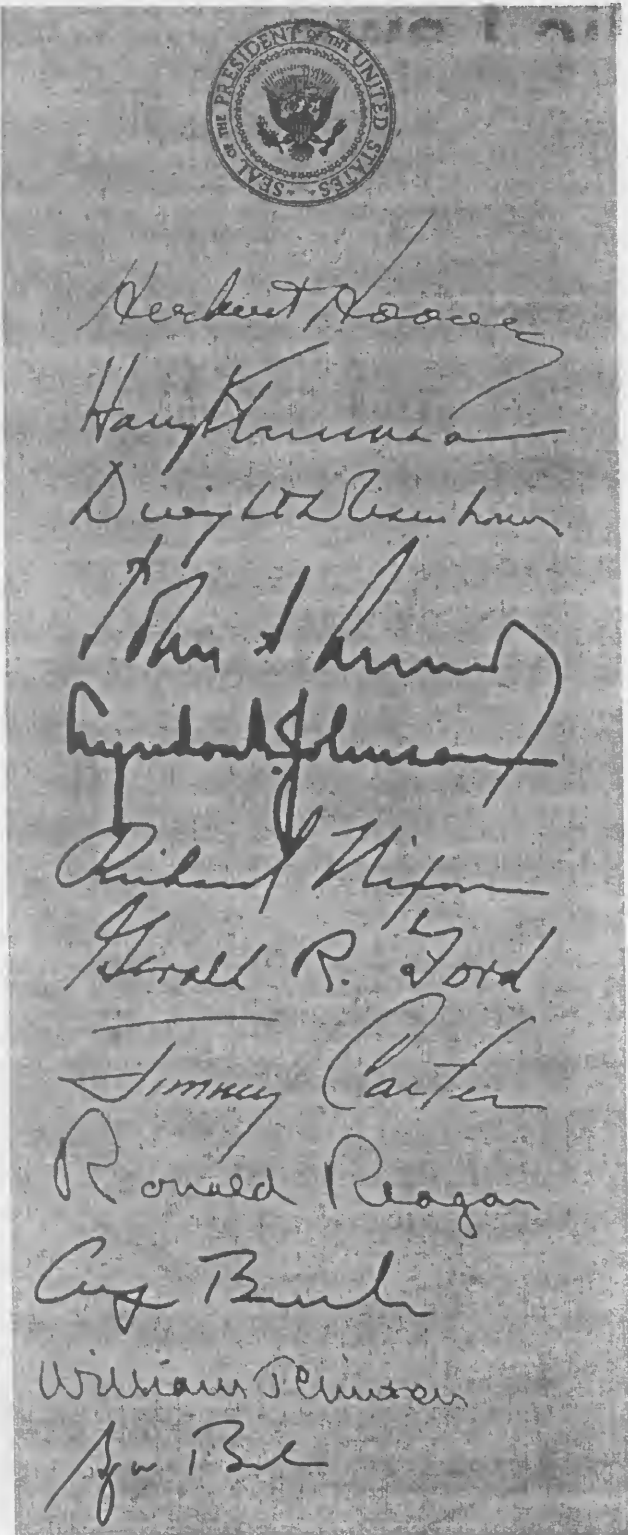 SEAL OF THE PRESIDENT OF THE UNITED STATES
Herbert Hoover
Harry S Truman
Dwight D Eisenhower
John F Kennedy
Lyndon B. Johnson
Richard Nixon
Gerald R. Ford
Jimmy Carter
Ronald Reagan
George Bush
William J Clinton
George W Bush